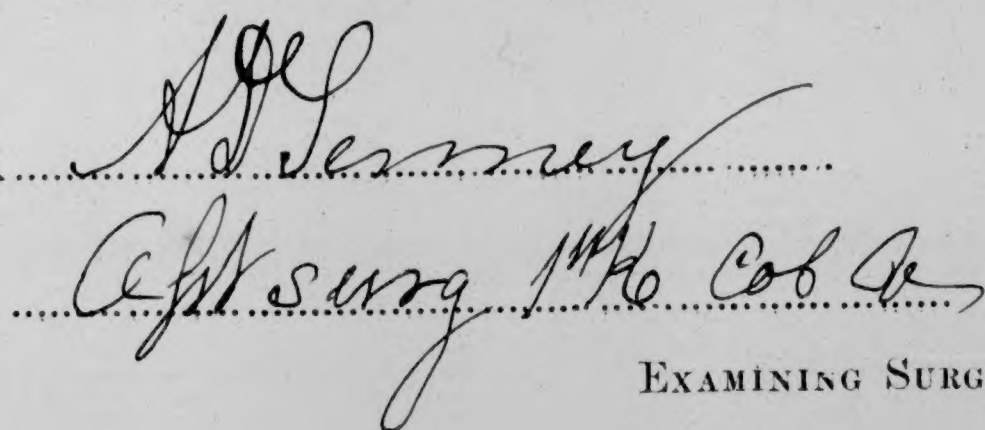 A D Tenney
Asst Surg 1st K Col Ar
EXAMINING SURG